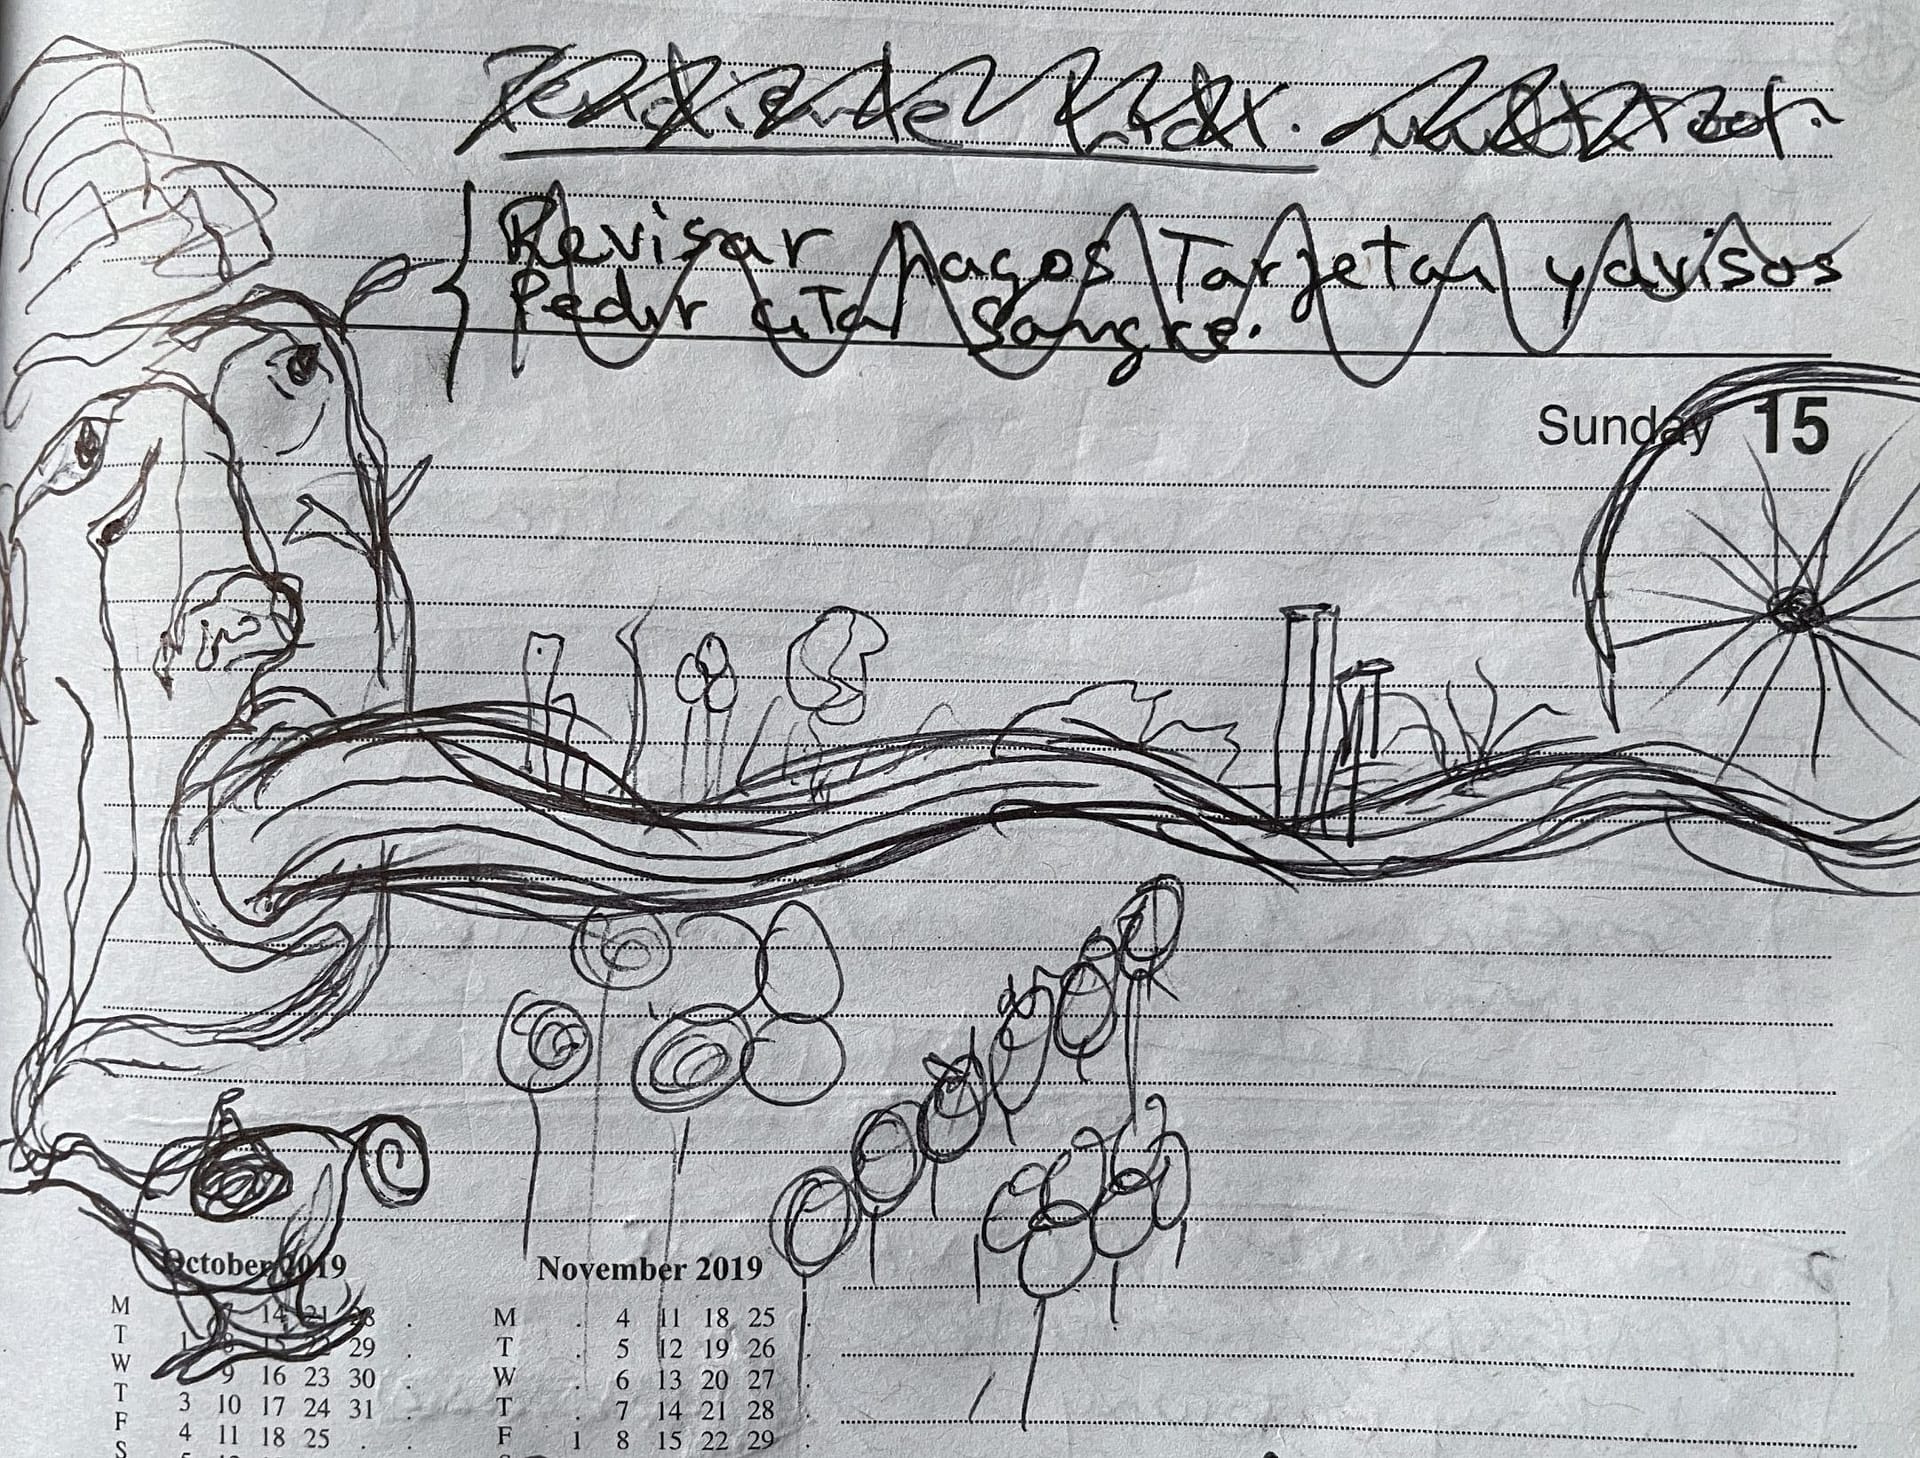 Pendiente
Revisar pagos Tarjetas y avisos
Pedir cita Sangre.
Sunday 15
October 2019
November 2019
M 7 14 21 28 .
T 1 8 15 22 29 .
W 9 16 23 30 .
T 3 10 17 24 31 .
F 4 11 18 25 . .
S
M . 4 11 18 25 .
T . 5 12 19 26 .
W . 6 13 20 27 .
T . 7 14 21 28 .
F 1 8 15 22 29 .